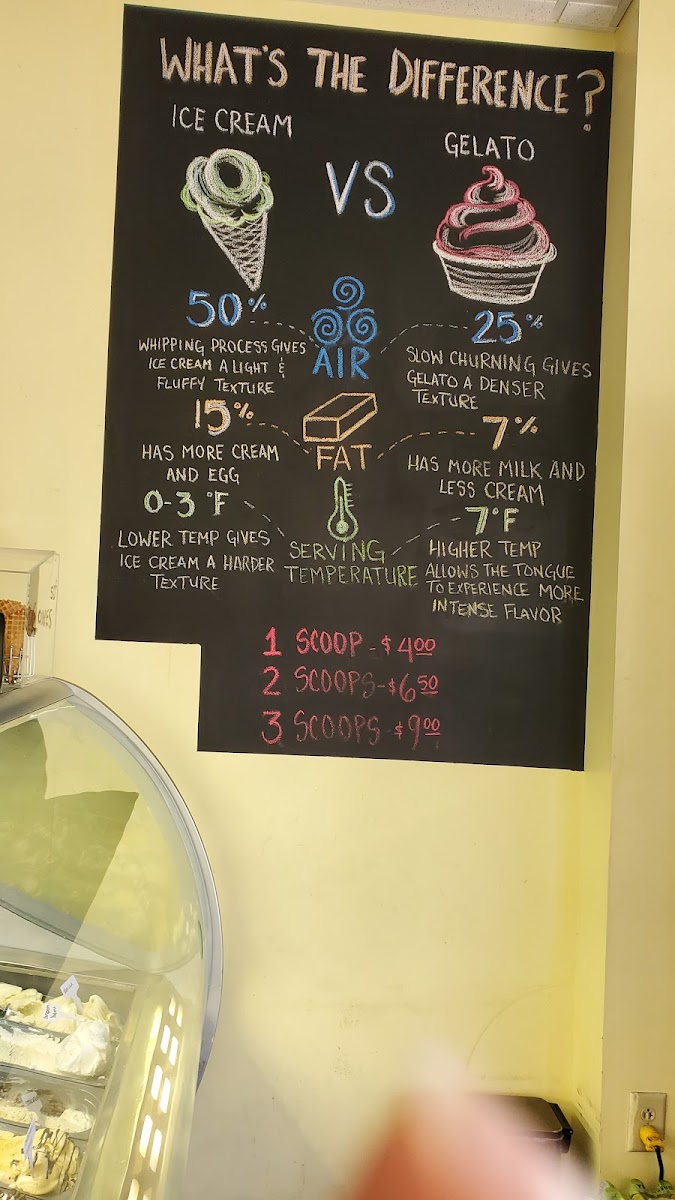 WHAT'S THE DIFFERENCE?
ICE CREAM
VS
GELATO
50%
AIR
25%
WHIPPING PROCESS GIVES
ICE CREAM A LIGHT &
FLUFFY TEXTURE
SLOW CHURNING GIVES
GELATO A DENSER
TEXTURE
15%
FAT
7%
HAS MORE CREAM
AND EGG
HAS MORE MILK AND
LESS CREAM
0-3°F
SERVING
TEMPERATURE
7°F
LOWER TEMP GIVES
ICE CREAM A HARDER
TEXTURE
HIGHER TEMP
ALLOWS THE TONGUE
TO EXPERIENCE MORE
INTENSE FLAVOR
1 SCOOP - $4.00
2 SCOOPS - $6.50
3 SCOOPS - $9.00